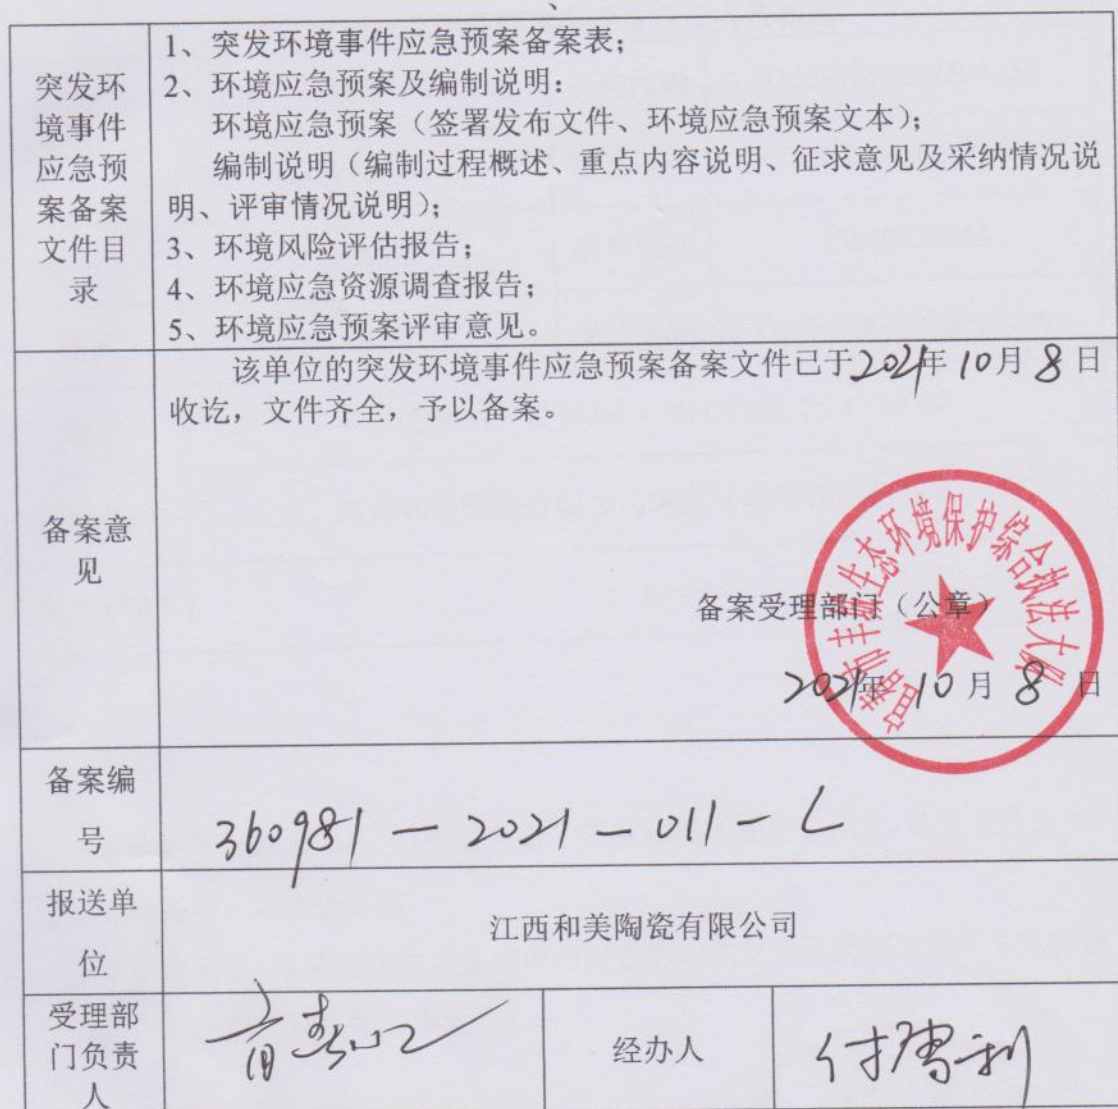 突发环
境事件
应急预
案备案
文件目
录
1、突发环境事件应急预案备案表；
2、环境应急预案及编制说明：
环境应急预案（签署发布文件、环境应急预案文本）；
编制说明（编制过程概述、重点内容说明、征求意见及采纳情况说
明、评审情况说明）；
3、环境风险评估报告；
4、环境应急资源调查报告；
5、环境应急预案评审意见。
备案意
见
该单位的突发环境事件应急预案备案文件已于2021年10月8日
收讫，文件齐全，予以备案。
宜春市丰城生态环境保护综合执法大队
备案受理部门（公章）
2021年10月8日
备案编
号
360981-2021-011-L
报送单
位
江西和美陶瓷有限公司
受理部
门负责
人
经办人